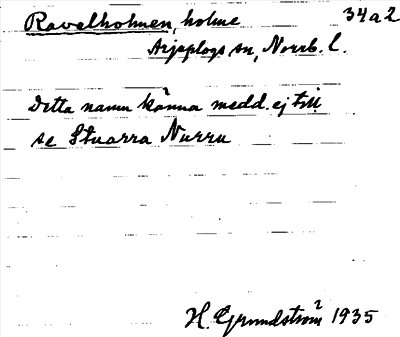 Ravelholmen, holme 34a2
Arjeplogs sn, Norrb. l.
Detta namn känna medd. ej till
se Stuorra Nurru
H. Grundström 1935